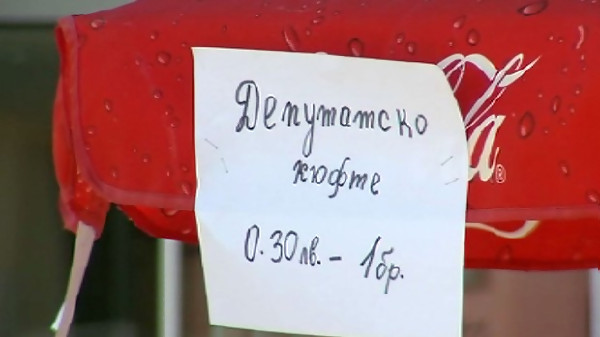 Депутатско
кюфте
0.30лв. - 1бр.